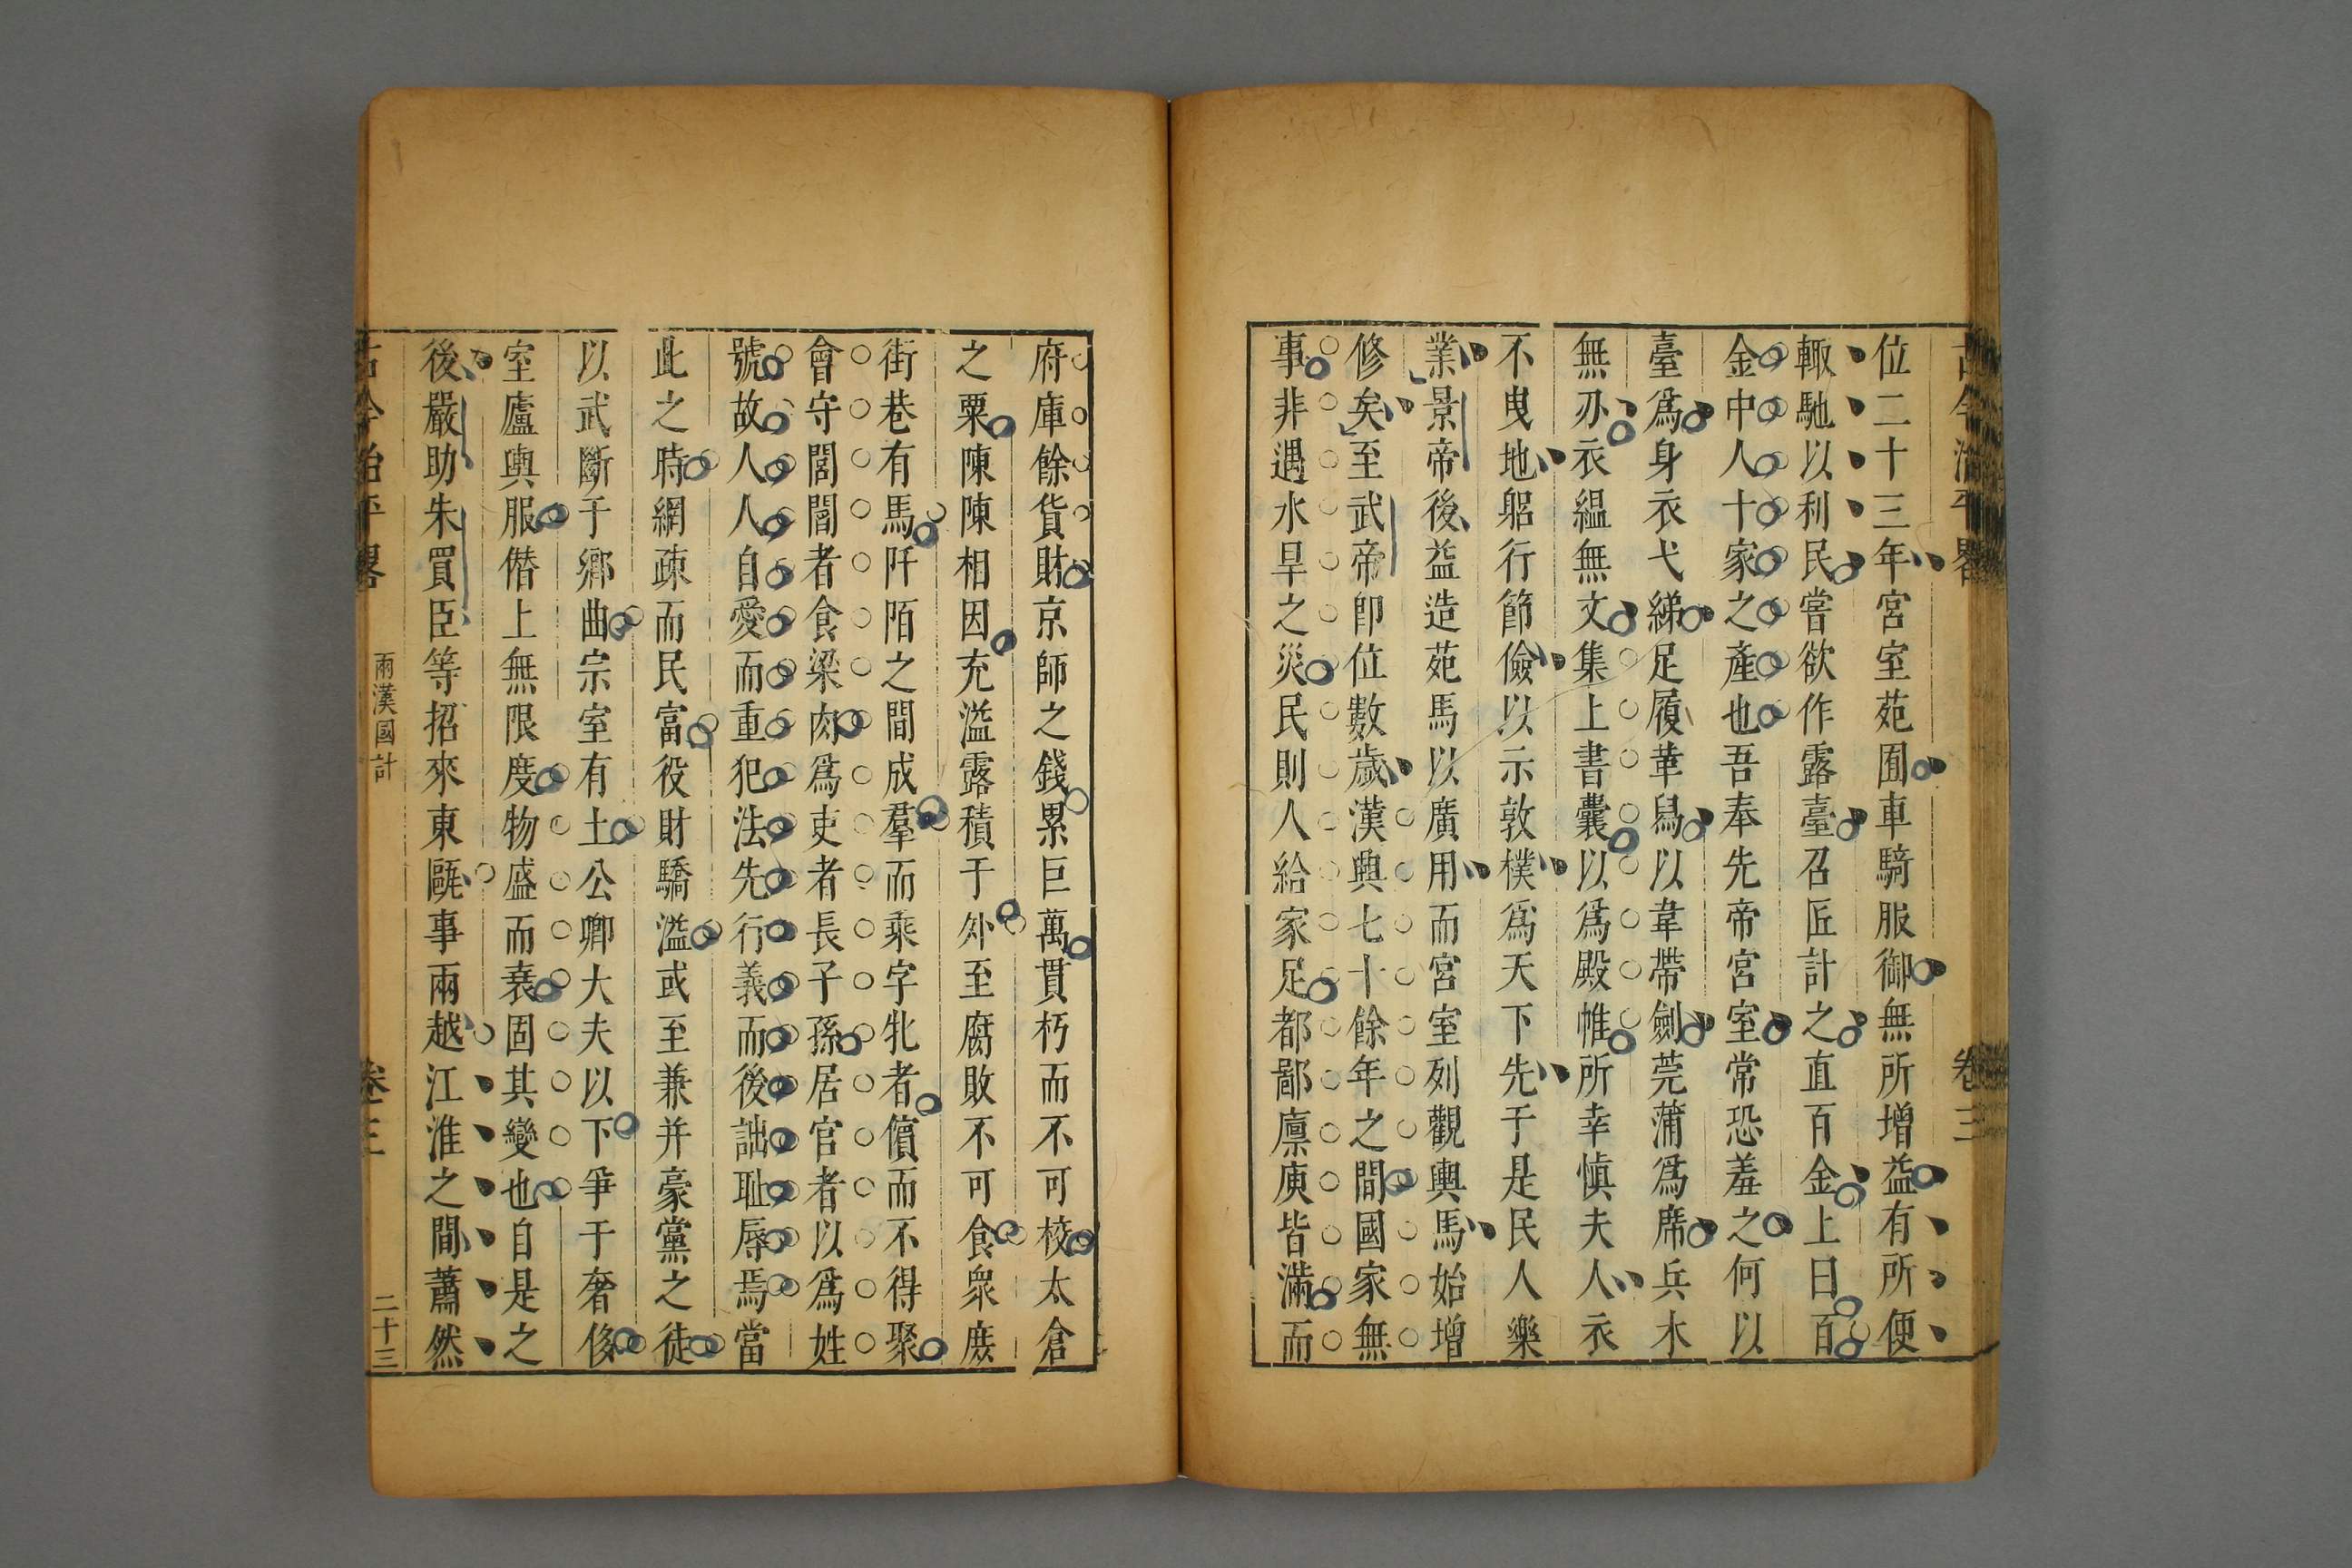 古今治平畧
卷三
位二十三年宮室苑囿車騎服御無所增益有所便
輙馳以利民嘗欲作露臺召匠計之直百金上曰百
金中人十家之產也吾奉先帝宮室常恐羞之何以
臺爲身衣弋綈足履革舄以韋帶劍莞蒲爲席兵木
無刃衣縕無文集上書囊以爲殿帷所幸愼夫人衣
不曳地躬行節儉以示敦樸爲天下先于是民人樂
業景帝後益造苑馬以廣用而宮室列觀輿馬始增
修矣至武帝卽位數歲漢興七十餘年之間國家無
事非遇水旱之災民則人給家足都鄙廩庾皆滿而
府庫餘貨財京師之錢累巨萬貫朽而不可校太倉
之粟陳陳相因充溢露積于外至腐敗不可食衆庶
街巷有馬阡陌之間成羣而乘字牝者儐而不得聚
會守閭閻者食梁肉爲吏者長子孫居官者以爲姓
號故人人自愛而重犯法先行義而後詘耻辱焉當
此之時網疎而民富役財驕溢或至兼并豪黨之徒
以武斷于鄉曲宗室有土公卿大夫以下爭于奢侈
室廬輿服僭上無限度物盛而衰固其變也自是之
後嚴助朱買臣等招來東甌事兩越江淮之間蕭然
古今治平畧
兩漢國計
卷三
二十三